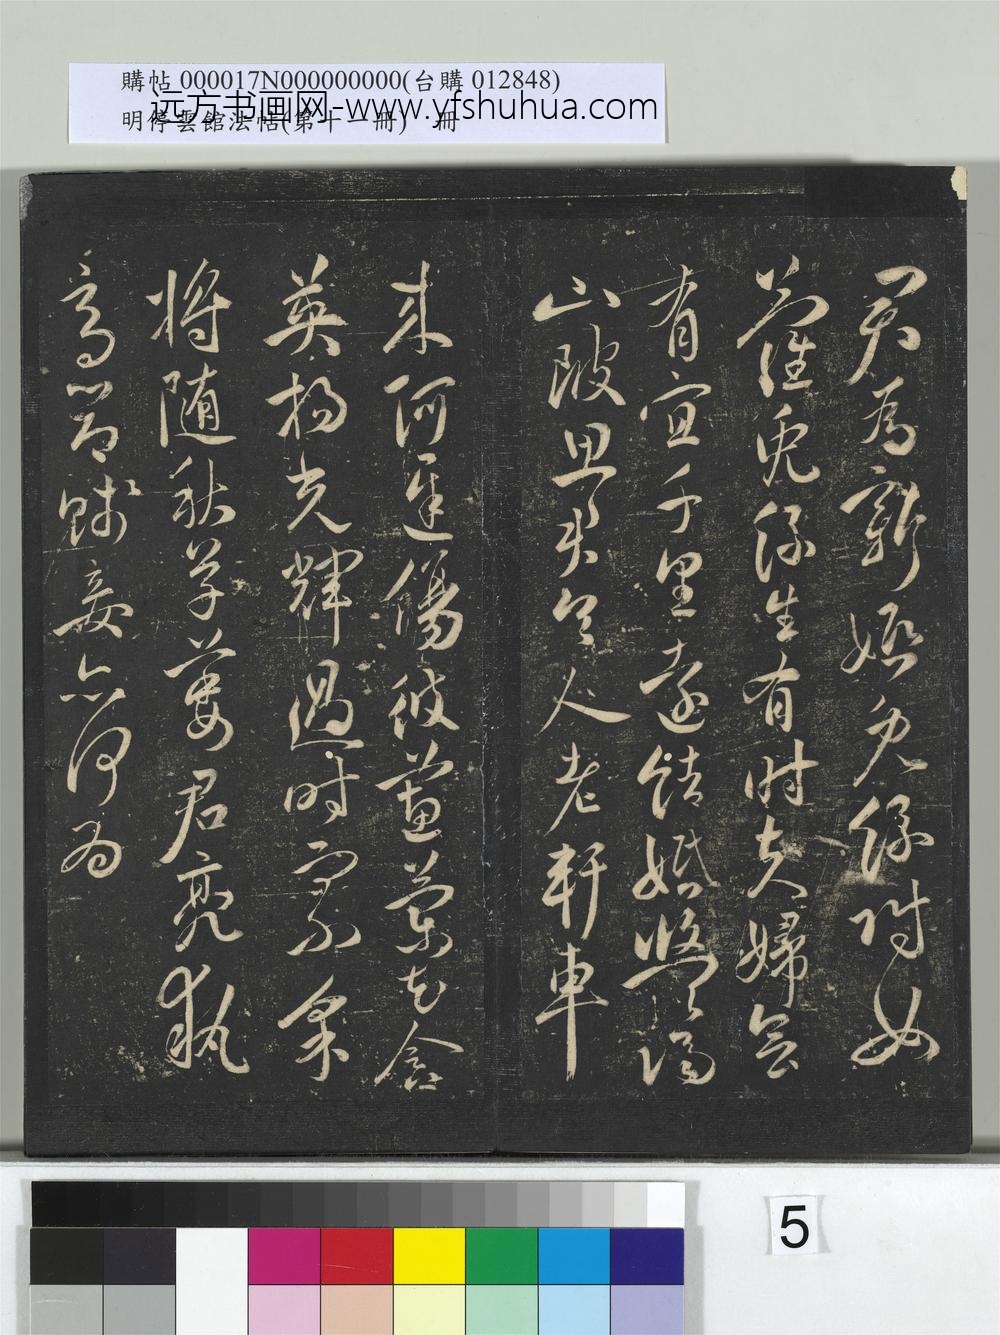 購帖 000017N000000000(台購 012848)
远方书画网-www.yfshuhua.com
明停雲館法帖(第十一冊) 冊
君為新婚兔絲附女
蘿兔絲生有時夫婦會
有宜千里遠結婚悠悠隔
山陂思君令人老軒車
來何遲傷彼蕙蘭花含
英揚光輝過時而不采
將随秋草萎君亮執
高節賤妾亦何為
5